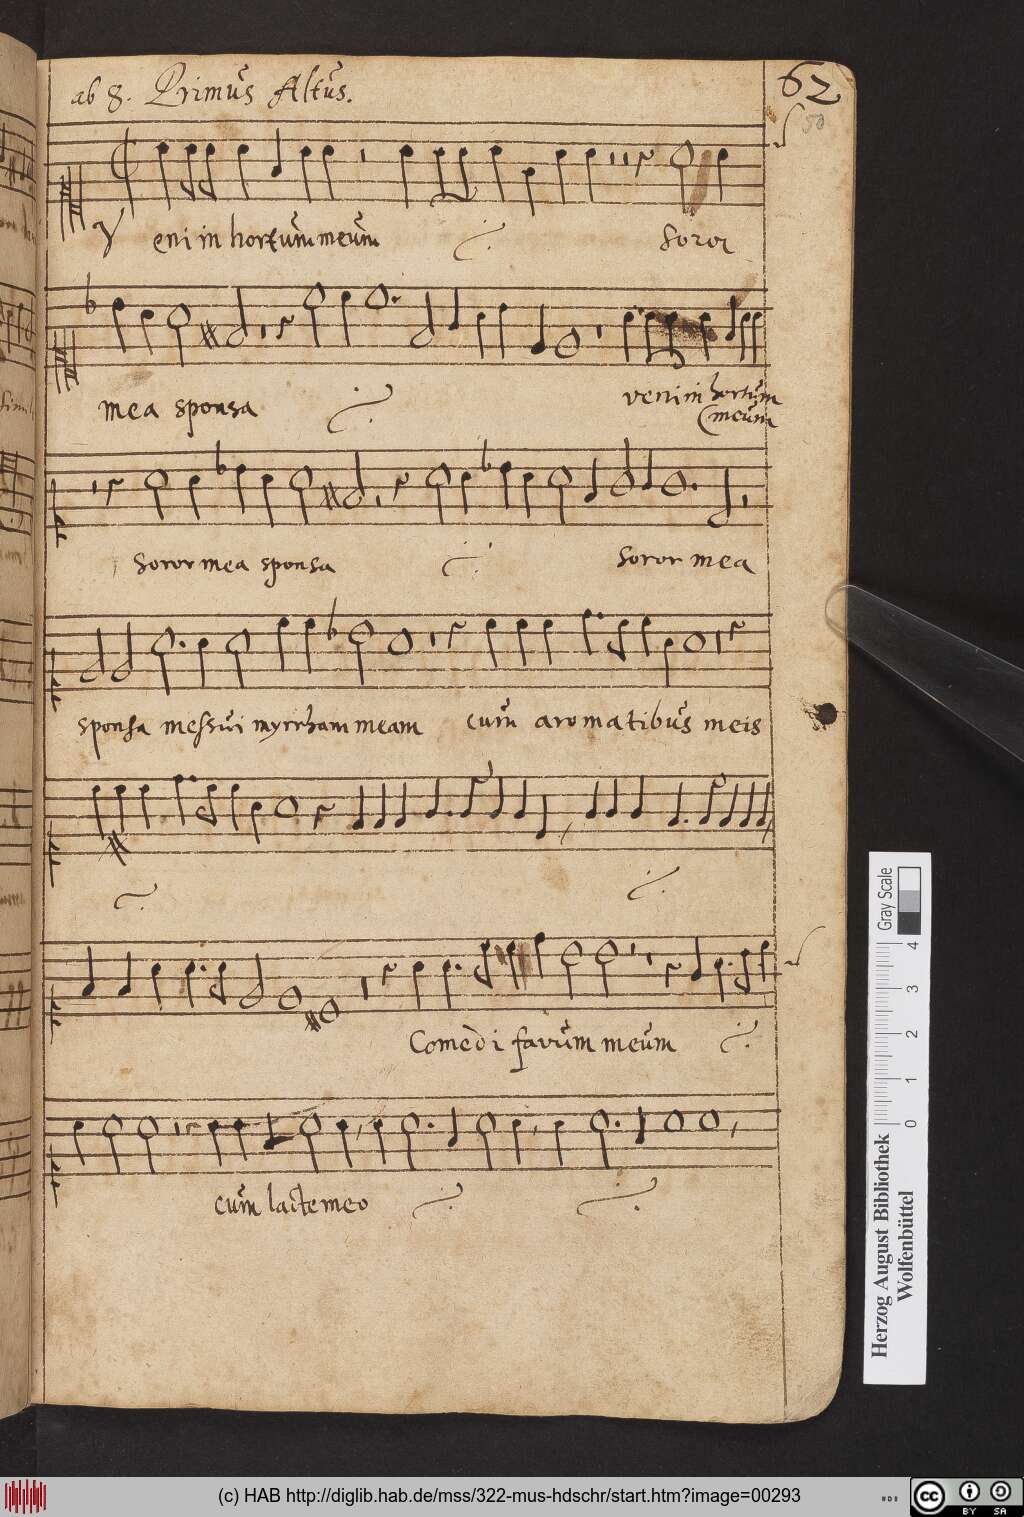 ab 8. Primus Altus.
62
50
Veni in hortum meum soror
mea sponsa veni in hortum
(meum
soror mea sponsa soror mea
sponsa messui myrrham meam cum aromatibus meis
Comedi favum meum
cum lacte meo
Gray Scale
0 1 2 3 4
Herzog August Bibliothek
Wolfenbüttel
(c) HAB http://diglib.hab.de/mss/322-mus-hdschr/start.htm?image=00293
cc BY SA